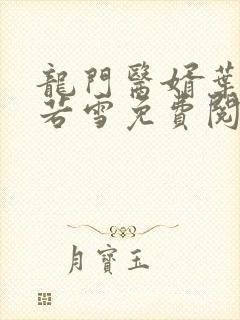 龍門醫婿葉
若雪免費閱
月寶玉